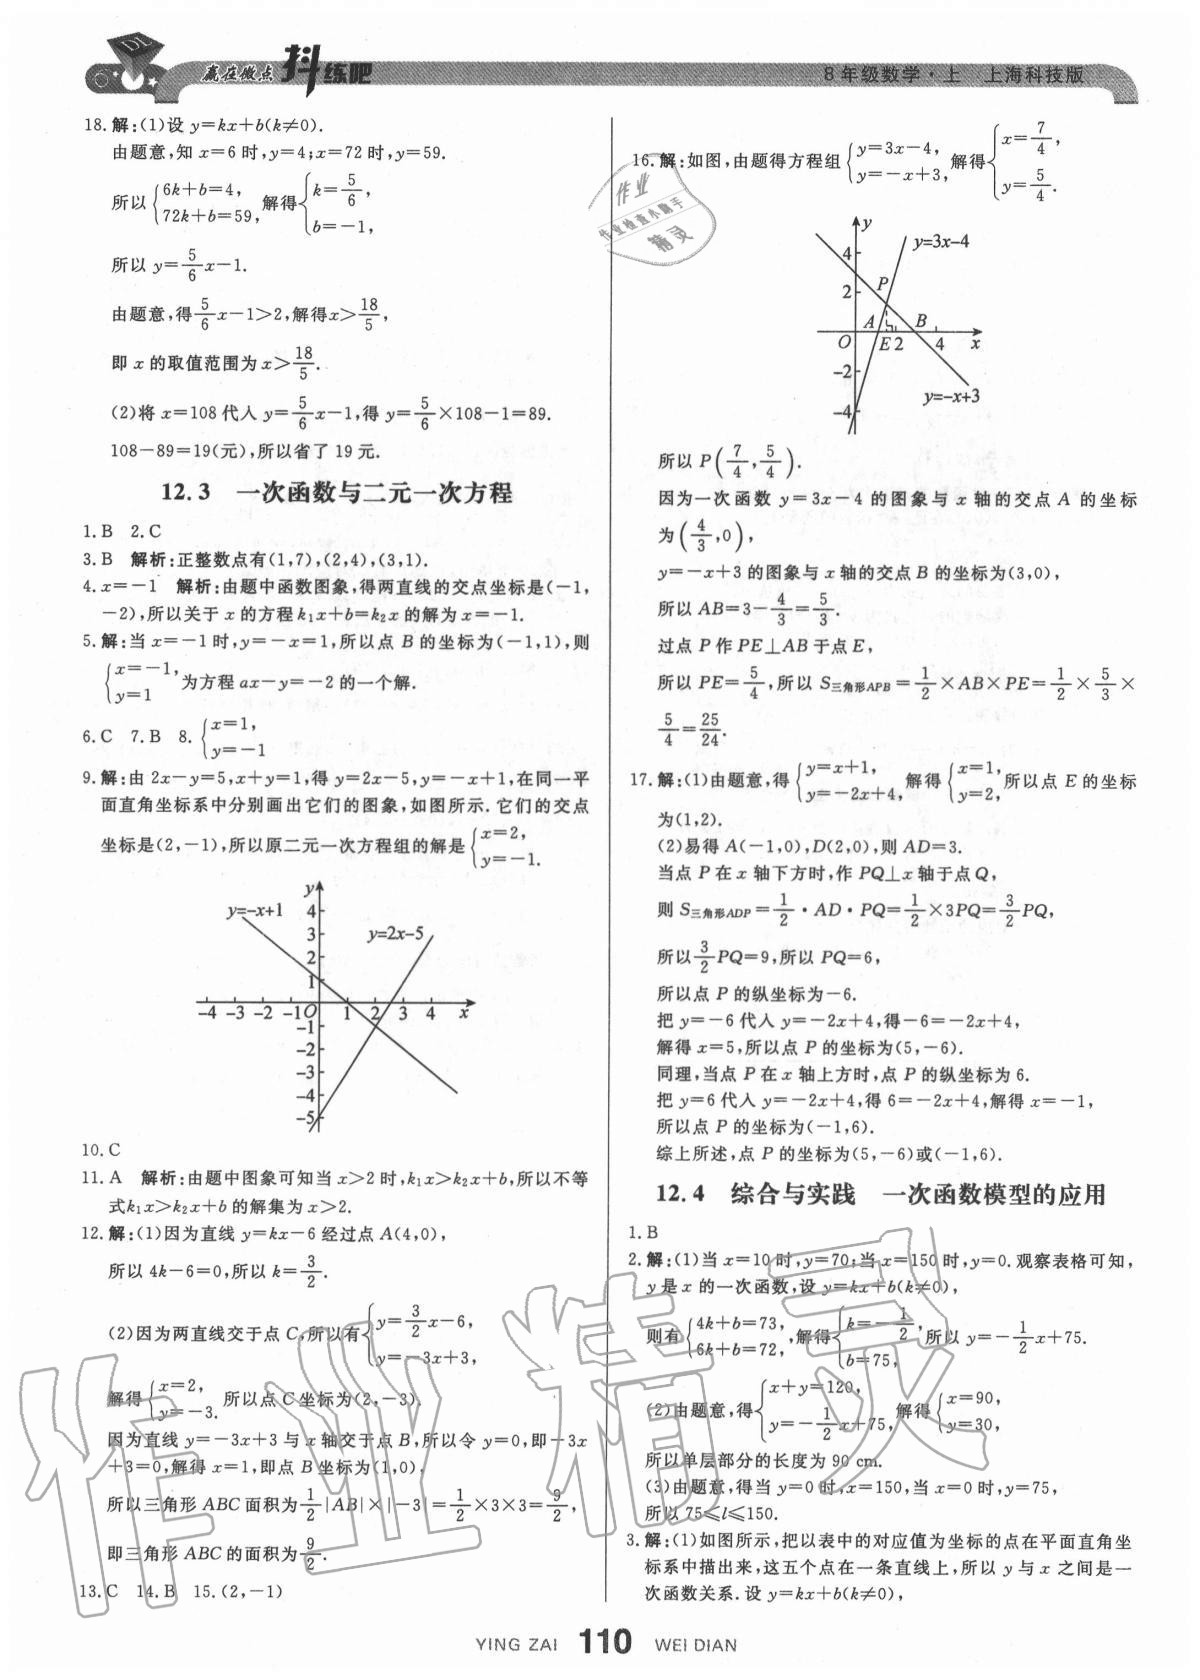 赢在微点 抖练吧
8年级数学·上 上海科技版
18.解:(1)设 y=kx+b(k≠0).
由题意,知 x=6 时,y=4;x=72 时,y=59.
所以{6k+b=4, 72k+b=59, 解得{k=5/6, b=-1,
所以 y=5/6x-1.
由题意,得5/6x-1>2,解得x>18/5,
即 x 的取值范围为 x>18/5.
(2)将 x=108 代入 y=5/6x-1,得 y=5/6×108-1=89.
108-89=19(元),所以省了 19 元.
12.3 一次函数与二元一次方程
1.B 2.C
3.B 解析:正整数点有(1,7),(2,4),(3,1).
4.x=-1 解析:由题中函数图象,得两直线的交点坐标是(-1,
-2),所以关于 x 的方程 k₁x+b=k₂x 的解为 x=-1.
5.解:当 x=-1 时,y=-x=1,所以点 B 的坐标为(-1,1),则
{x=-1, y=1 为方程 ax-y=-2 的一个解.
6.C 7.B 8.{x=1, y=-1
9.解:由 2x-y=5,x+y=1,得 y=2x-5,y=-x+1,在同一平
面直角坐标系中分别画出它们的图象,如图所示.它们的交点
坐标是(2,-1),所以原二元一次方程组的解是{x=2, y=-1.
y
y=-x+1 4
3 y=2x-5
2
1
-4 -3 -2 -1 O 1 2 3 4 x
-1
-2
-3
-4
-5
10.C
11.A 解析:由题中图象可知当 x>2 时,k₁x>k₂x+b,所以不等
式k₁x>k₂x+b 的解集为 x>2.
12.解:(1)因为直线 y=kx-6 经过点 A(4,0),
所以 4k-6=0,所以 k=3/2.
(2)因为两直线交于点 C,所以有{y=3/2x-6, y=-3x+3,
解得{x=2, y=-3. 所以点 C 坐标为(2,-3).
因为直线 y=-3x+3 与 x 轴交于点 B,所以令 y=0,即-3x
+3=0,解得 x=1,即点 B 坐标为(1,0),
所以三角形 ABC 面积为1/2|AB|×|-3|=1/2×3×3=9/2,
即三角形 ABC 的面积为9/2.
13.C 14.B 15.(2,-1)
16.解:如图,由题得方程组{y=3x-4, y=-x+3, 解得{x=7/4, y=5/4.
y
4 y=3x-4
2 P
A B
O E 2 4 x
-2
y=-x+3
-4
所以 P(7/4,5/4).
因为一次函数 y=3x-4 的图象与 x 轴的交点 A 的坐标
为(4/3,0),
y=-x+3 的图象与 x 轴的交点 B 的坐标为(3,0),
所以 AB=3-4/3=5/3.
过点 P 作 PE⊥AB 于点 E,
所以 PE=5/4,所以 S三角形APB=1/2×AB×PE=1/2×5/3×
5/4=25/24.
17.解:(1)由题意,得{y=x+1, y=-2x+4, 解得{x=1, y=2, 所以点 E 的坐标
为(1,2).
(2)易得 A(-1,0),D(2,0),则 AD=3.
当点 P 在 x 轴下方时,作 PQ⊥x 轴于点 Q,
则 S三角形ADP=1/2·AD·PQ=1/2×3PQ=3/2PQ,
所以3/2PQ=9,所以 PQ=6,
所以点 P 的纵坐标为-6.
把 y=-6 代入 y=-2x+4,得-6=-2x+4,
解得 x=5,所以点 P 的坐标为(5,-6).
同理,当点 P 在 x 轴上方时,点 P 的纵坐标为 6.
把 y=6 代入 y=-2x+4,得 6=-2x+4,解得 x=-1,
所以点 P 的坐标为(-1,6).
综上所述,点 P 的坐标为(5,-6)或(-1,6).
12.4 综合与实践 一次函数模型的应用
1.B
2.解:(1)当 x=10 时,y=70;当 x=150 时,y=0.观察表格可知,
y 是 x 的一次函数,设 y=kx+b(k≠0),
则有{4k+b=73, 6k+b=72, 解得{k=-1/2, b=75, 所以 y=-1/2x+75.
(2)由题意,得{x+y=120, y=-1/2x+75, 解得{x=90, y=30,
所以单层部分的长度为 90 cm.
(3)由题意,得当 y=0 时,x=150,当 x=0 时,y=75,
所以 75≤l≤150.
3.解:(1)如图所示,把以表中的对应值为坐标的点在平面直角坐
标系中描出来,这五个点在一条直线上,所以 y 与 x 之间是一
次函数关系.设 y=kx+b(k≠0),
YING ZAI 110 WEI DIAN
作业
作业检查小助手
精灵
作业精灵